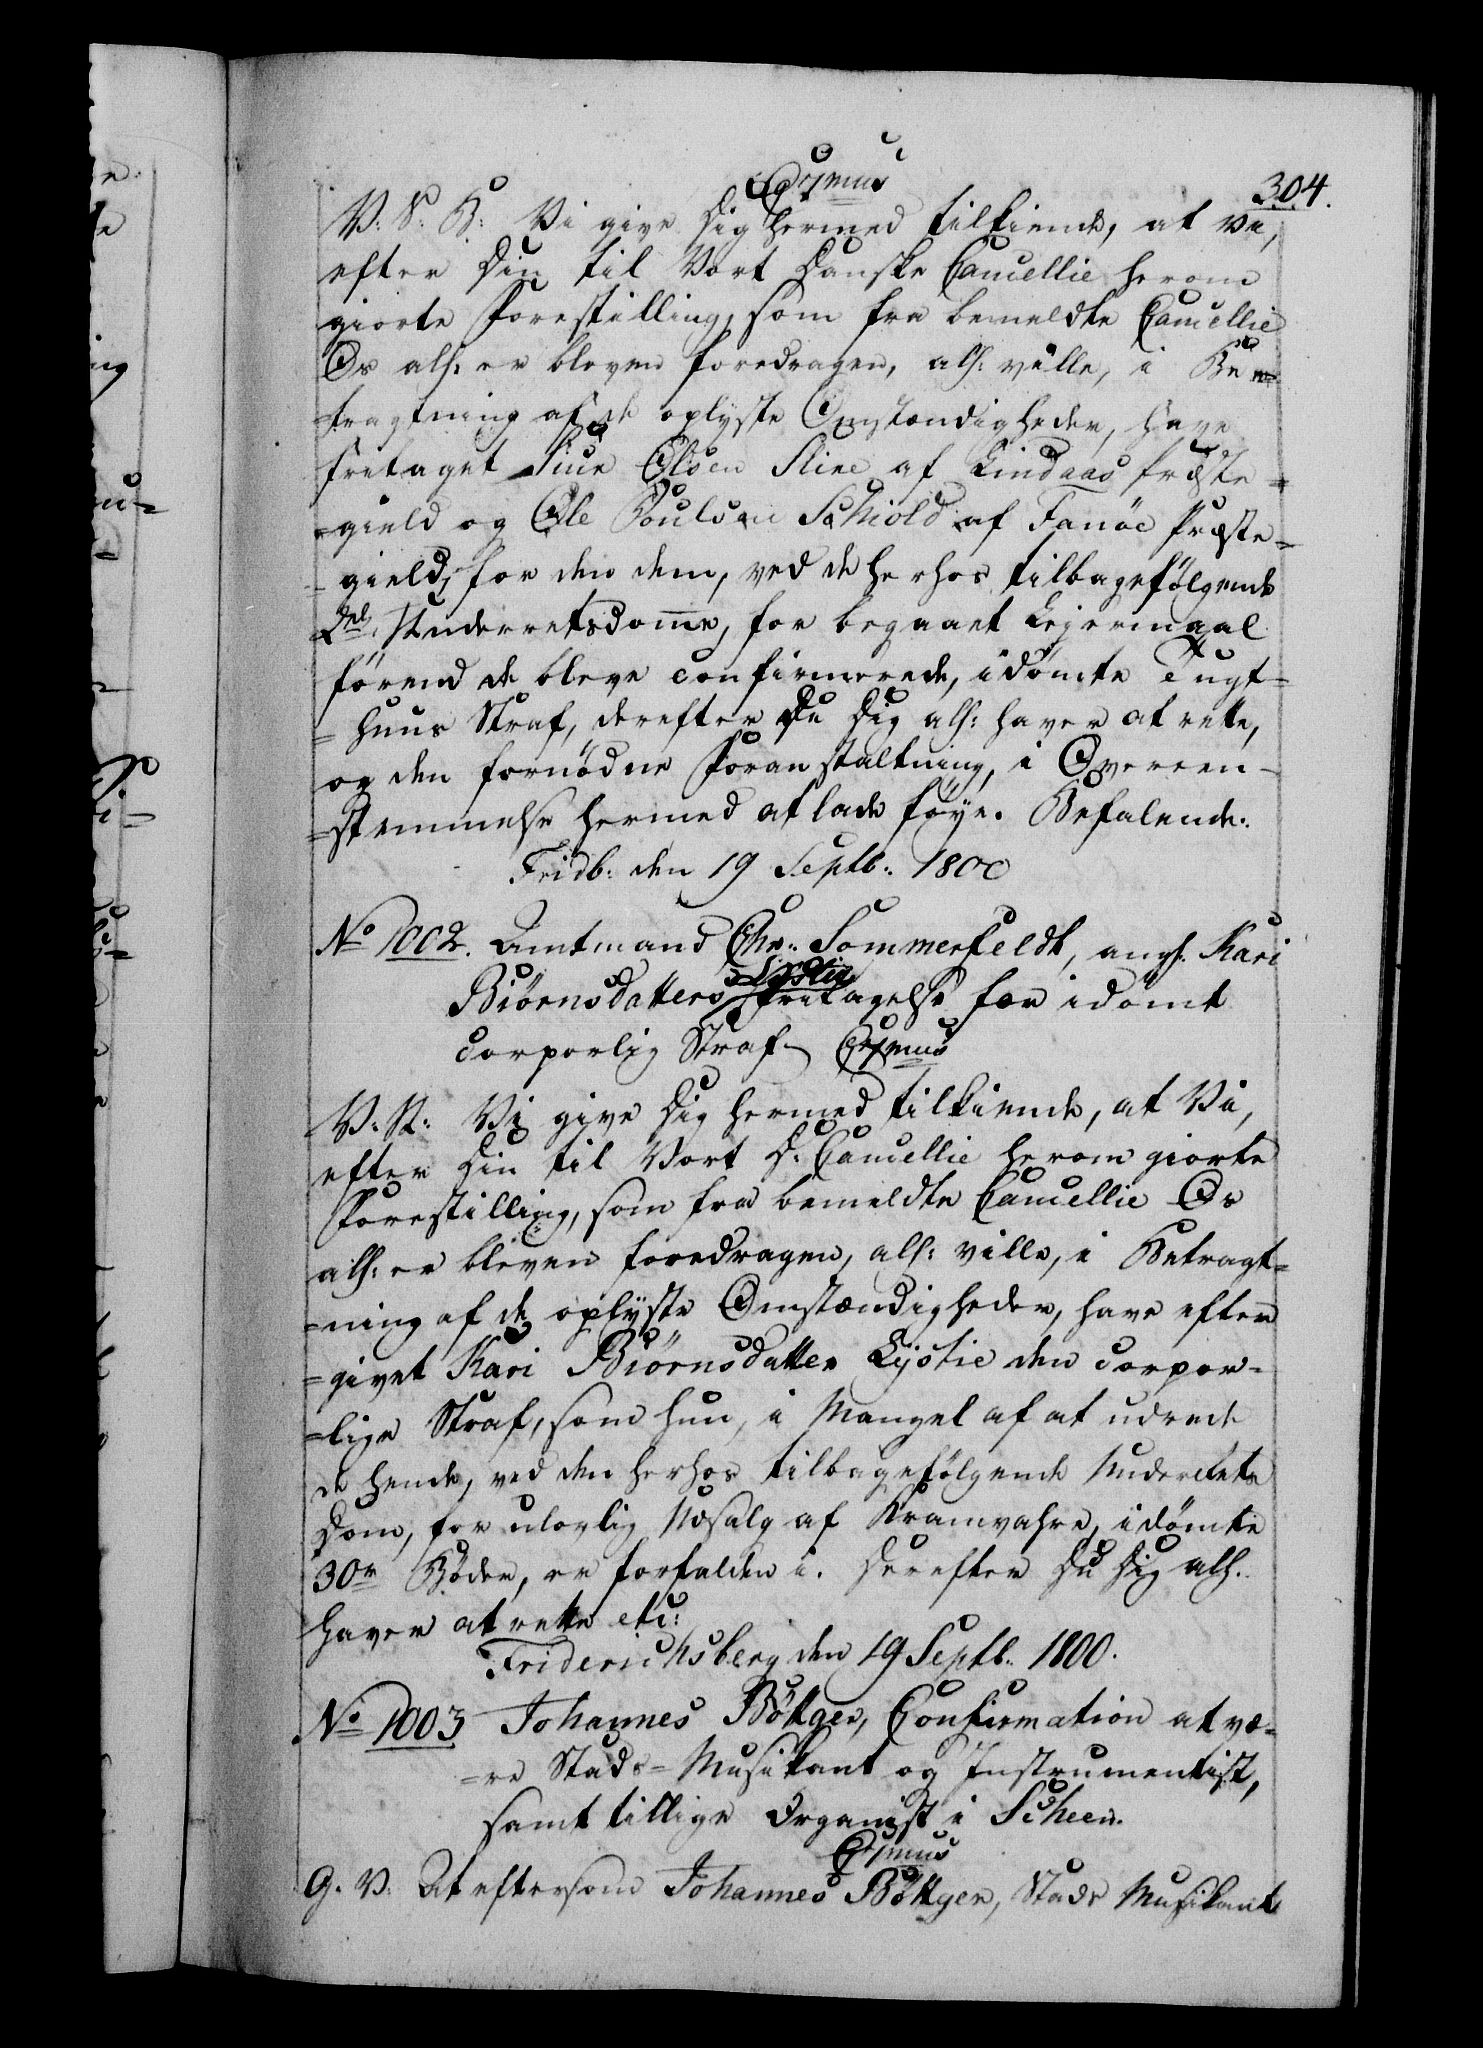 304.
Cymus
V: S: B: Vi give Dig hermed tilkiende, at Vi,
efter Din til Vort Danske Cancellie herom
giorte Forestilling, som fra bemeldte Cancellie
Os alh: er bleven foredragen, alh: ville, i Be=
=tragtning af de oplyste Omstændigheder, have
fritaget Siur Olsen Sline af Lindaas Præste=
=gield og Ole Poulsen Schiold af Fanöe Præste=
=gield, for den dem, ved de herhos tilbagefölgende
2de Underretsdomme, for begaaet Lejermaal
förend de bleve confirmerede, idömte Tugt=
=huus Straf, derefter Du Dig alh: haver at rette,
og den fornödne Foranstaltning, i Overeen=
=stemmelse hermed at lade föye. Befalende.
Fridb: den 19 Septb: 1800
No 1002. Amtmand Chr: Sommerfeldt, angl. Kari
Biörnsdatters Lystie fritagelse for idömt
corporlig Straf. Cymus
V. S: Vi give Dig hermed tilkiende, at Vi,
efter Din til Vort D: Cancellie herom giorte
Forestilling, som fra bemeldte Cancellie Os
alh: er bleven foredragen, alh: ville, i Betragt=
=ning af de oplyste Omstændigheder, have efter
=givet Kari Biörnsdatter Lystie den corpor=
=lige Straf, som hun, i Mangel af at udrede
de hende, ved den herhos tilbagefölgende Underrets
Dom, for ulovlig Udsalg af Kramvahre, idömte
30 Böder, er forfalden i. Derefter Du Dig alh.
haver at rette etc:
Friderichsberg den 19 Septb. 1800.
No 1003 Johannes Böttger, Confirmation at væ=
=re Stads=Musikant og Instrumentist,
samt tillige Organist i Scheen.
Cymus
G. V. At eftersom Johannes Böttger, Stads Musikant